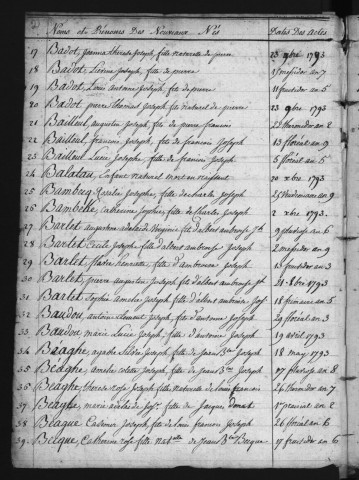 Noms et Prénoms Des Nouveaux Nés Dates Des Actes
17 Badot, Joseph, fille naturelle de pierre 23 9bre 1793
18 Badot, Joseph, fils de pierre messidor an 7
19 Badot, Louis antoine Joseph, fils de pierre 11 fructidor an 5
20 Badot, pierre Joseph fils naturel de pierre 23 9bre 1793
21 Bailleul, augustin Joseph, fils de pierre francois 22 thermidor an 2
22 Bailleul, francois Joseph, fils de francois Joseph 13 floréal an 9
23 Bailleul Lucie Josephe, fille de francois Joseph 5 floréal an 6
24 Balatau, Enfant naturel mort en naissant 30 xbre 1793
25 Bambecq Rosalie Josephe, fille de charles Joseph 25 vendemiaire an 9
26 Bambelle Catherine Josephe, fille de Charles Joseph 2 xbre 1793
27 Barlet augustine adelaide fille d'albert ambroise Jph 9 pluviose an 6
28 Barlet Cecile Josephe fille d'albert ambroise Joseph 2 messidor an 9
29 Barlet, henriette, fille d'ambroise Joseph 13 fructidor an 3
30 Barlet, pierre augustin Joseph fils d'albert ambroise Jph 21 8bre 1793
31 Barlet Sophie amelie Joseph, fille d'albert ambroise Jph 18 frimaire an 5
32 Baudou, antoine Joseph, fils d'antoine Joseph 29 floréal an 3
33 Baudou marie Lucie Joseph, fille d'antoine Joseph 19 avril 1793
34 Béaghe, agathe Joseph, fille de Jean Bte Joseph 18 may 1793
35 Béaghe, amelie colette Joseph, fille de Jean Bte Joseph 17 pluviose an 8
36 Béaghe therese rose Joseph fille naturelle de louis francois 24 thermidor an 7
37 Béaghe, marie de Jph. fille de Jacque Donat 1er prairial an 2
38 Béague Casimir Joseph, fils de louis francois Joseph 26 floréal an 6
39 Bécque, Catherine rose fille nat.elle de Jean Bte Becque 17 fructidor an 6